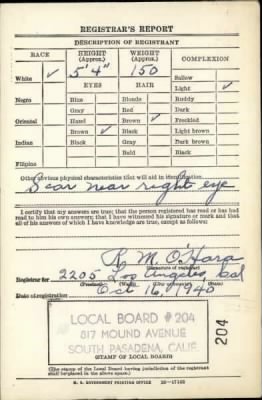 REGISTRAR'S REPORT
DESCRIPTION OF REGISTRANT
RACE HEIGHT (Approx.) WEIGHT (Approx.) COMPLEXION
White ✓ 5' 4" 150 Sallow
EYES HAIR Light ✓
Negro Blue Blonde Ruddy
Gray Red Dark
Oriental Hazel Brown ✓ Freckled
Brown ✓ Black Light brown
Indian Black Gray Dark brown
Bald Black
Filipino
Other obvious physical characteristics that will aid in identification
Scar near right eye
I certify that my answers are true; that the person registered has read or has had read to him his own answers; that I have witnessed his signature or mark and that all of his answers of which I have knowledge are true, except as follows:
R. M. O'Hara
(Signature of registrar)
Registrar for 2205 Los Angeles Cal
(Precinct) (Ward) (City or county) (State)
Date of registration Oct 16, 1940
LOCAL BOARD # 204
817 MOUND AVENUE
SOUTH PASADENA, CALIF
(STAMP OF LOCAL BOARD)
204
(The stamp of the Local Board having jurisdiction of the registrant shall be placed in the above space.)
U. S. GOVERNMENT PRINTING OFFICE 16—17105